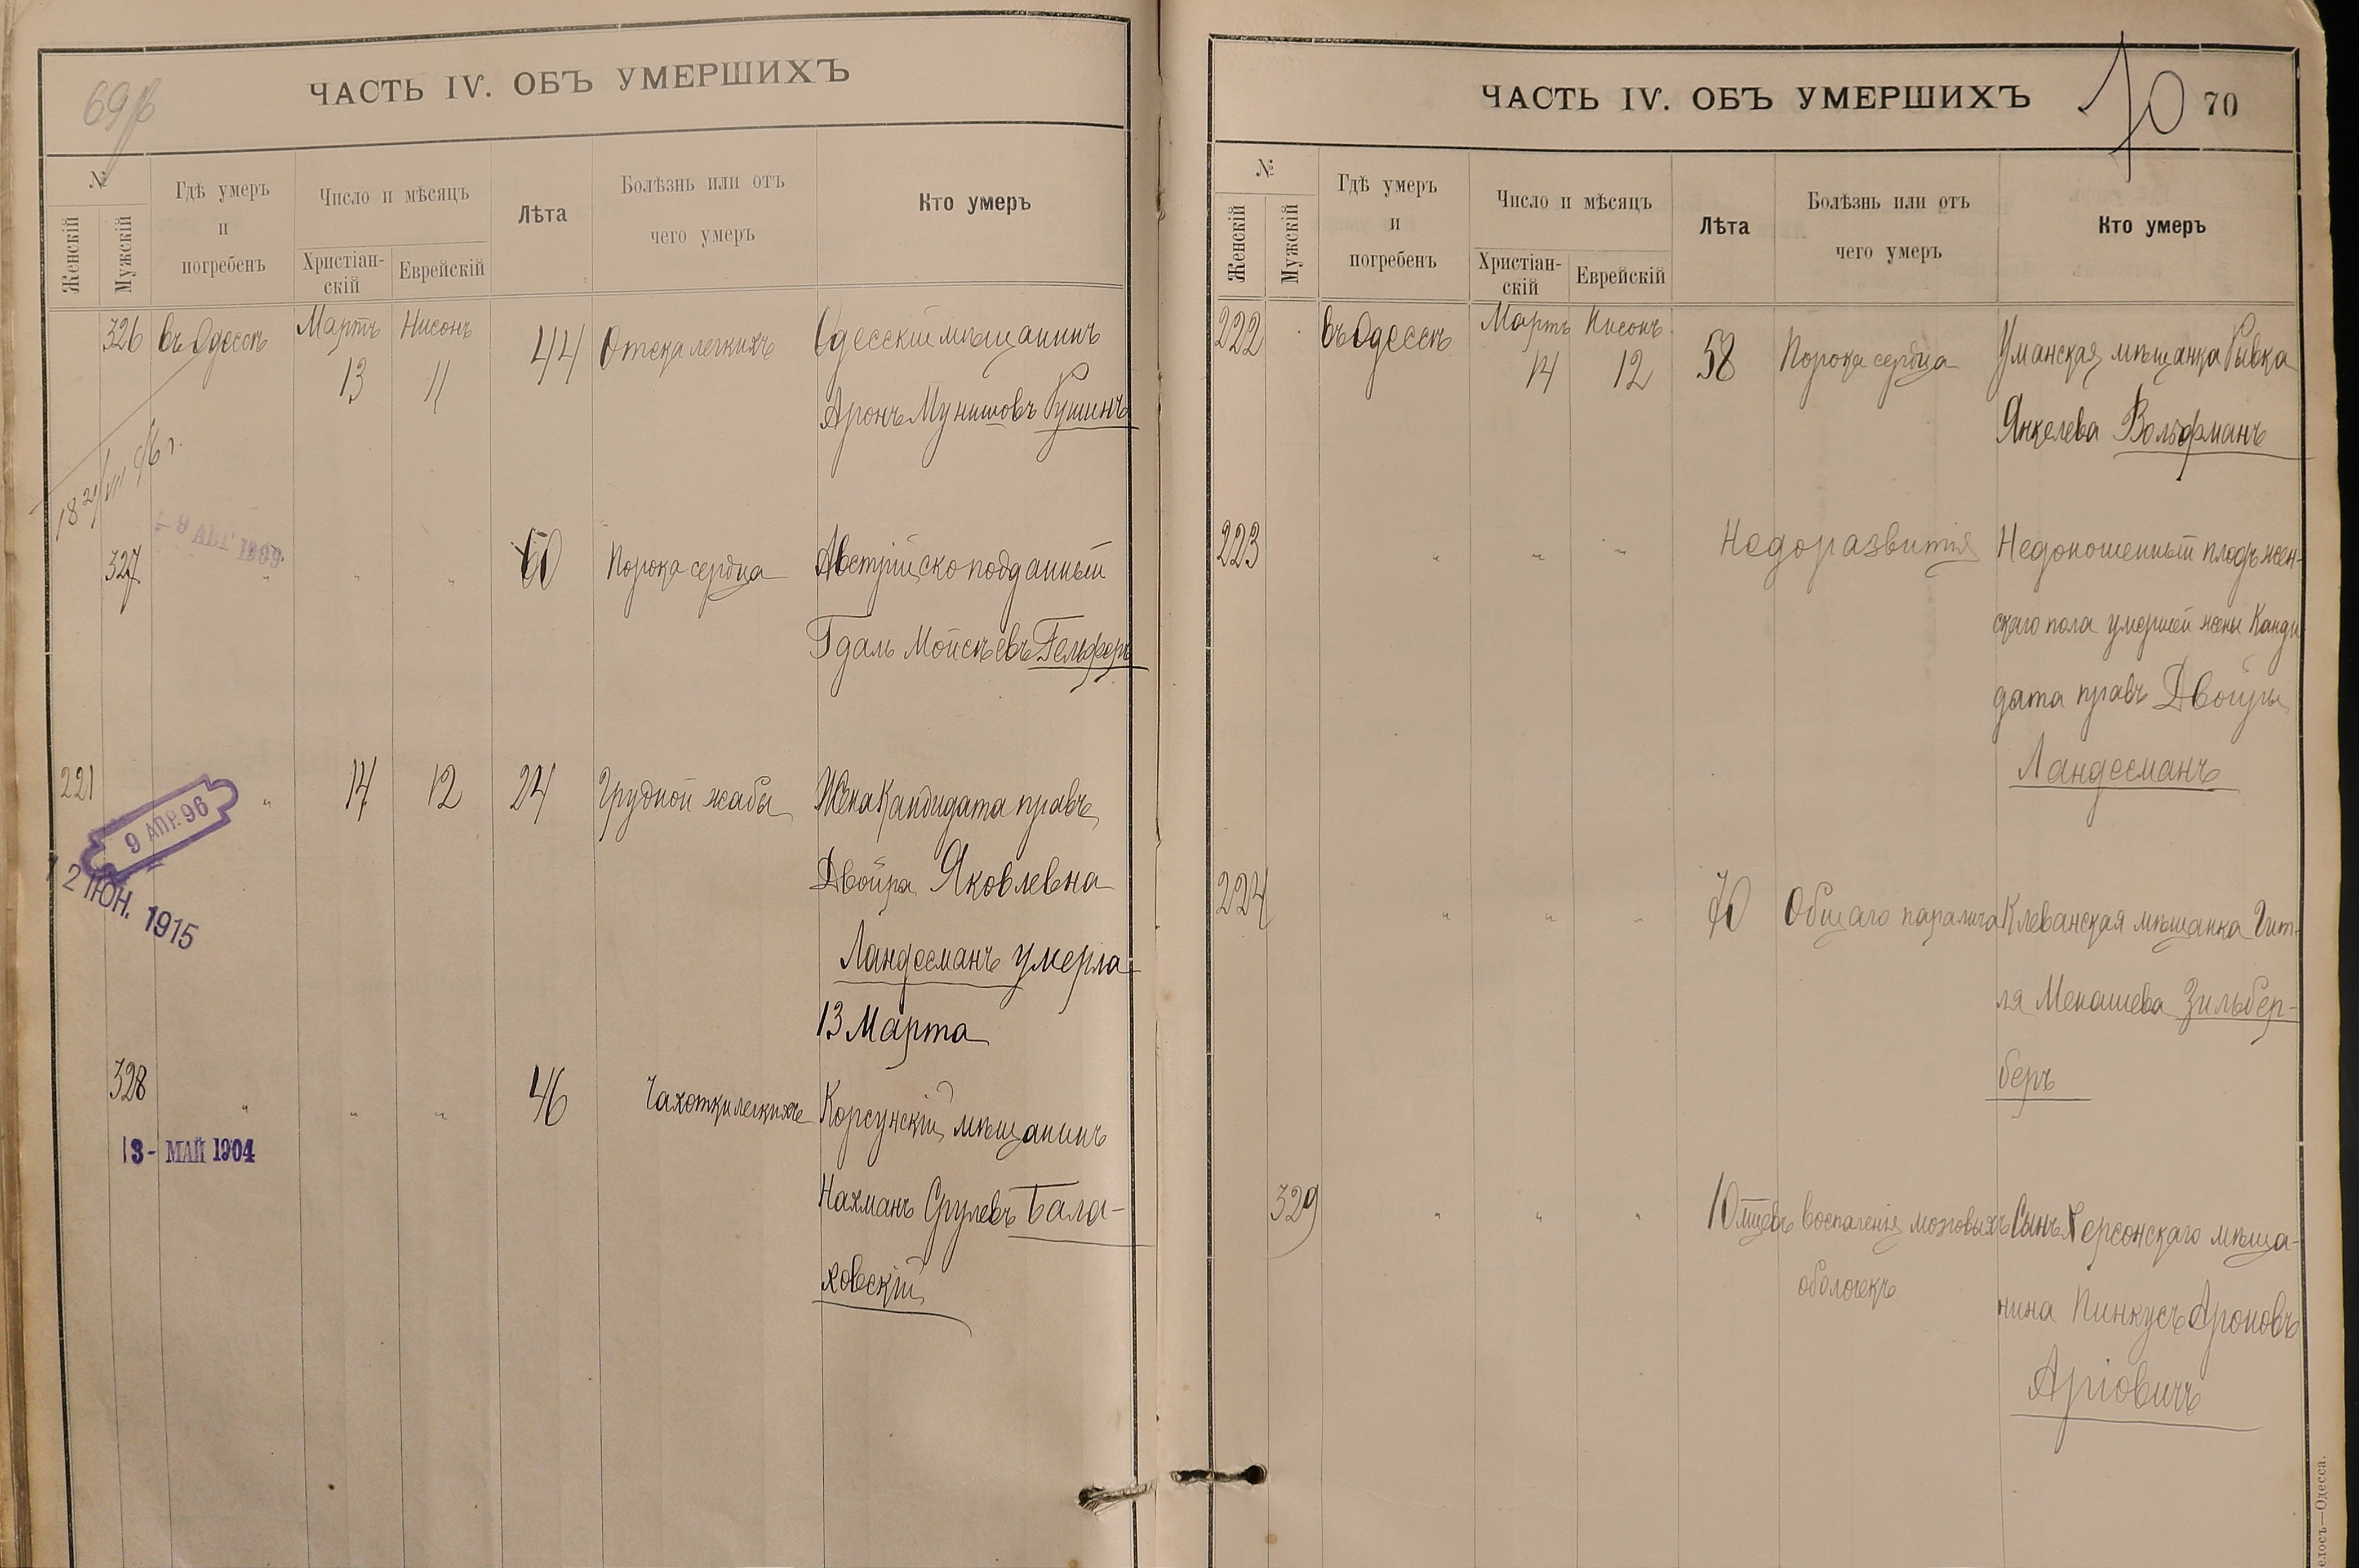 69
ЧАСТЬ IV. ОБЪ УМЕРШИХЪ
№
Женскій
Мужскій
Гдѣ умеръ
и
погребенъ
Число и мѣсяцъ
Христіан-
скій
Еврейскій
Лѣта
Болѣзнь или отъ
чего умеръ
Кто умеръ
326 въ Одессѣ Мартъ Нисонъ 44 Отека легкихъ Одесскій мѣщанинъ
13 11 Аронъ Мунишовъ Рушинъ
9 АВГ 1909
327 " " " 60 Порока сердца Австрійскоподданный
Гдаль Мойсѣевъ Гельферъ
221 " 14 12 24 Грудной жабы Жена Кандидата правъ
9 АПР. 96
2 ІЮН. 1915
Двойра Яковлевна
Ландесманъ умерла
13 Марта
328 " " " 46 Чахотки легкихъ Корсунскій мѣщанинъ
13 - МАЙ 1904
Нахманъ Срулевъ Бала-
ховскій
ЧАСТЬ IV. ОБЪ УМЕРШИХЪ 70 70
№
Женскій
Мужскій
Гдѣ умеръ
и
погребенъ
Число и мѣсяцъ
Христіан-
скій
Еврейскій
Лѣта
Болѣзнь или отъ
чего умеръ
Кто умеръ
222 въ Одессѣ Мартъ Нисонъ 58 Порока сердца Уманская мѣщанка Рывка
14 12 Янкелева Вольфманъ
223 " " " Недоразвитія Недоношенный плодъ жен-
скаго пола умершей жены Канди-
дата правъ Двойры
Ландесманъ
224 " " " 70 Общаго паралича Клеванская мѣщанка Гит-
ля Менашева Зильбер-
беръ
329 " " " 10 мѣсяцевъ воспаленіе мозговыхъ Сынъ Херсонскаго мѣща-
оболочекъ нина Пинкусъ Ароновъ
Аріовичъ
елосъ—Одесса.